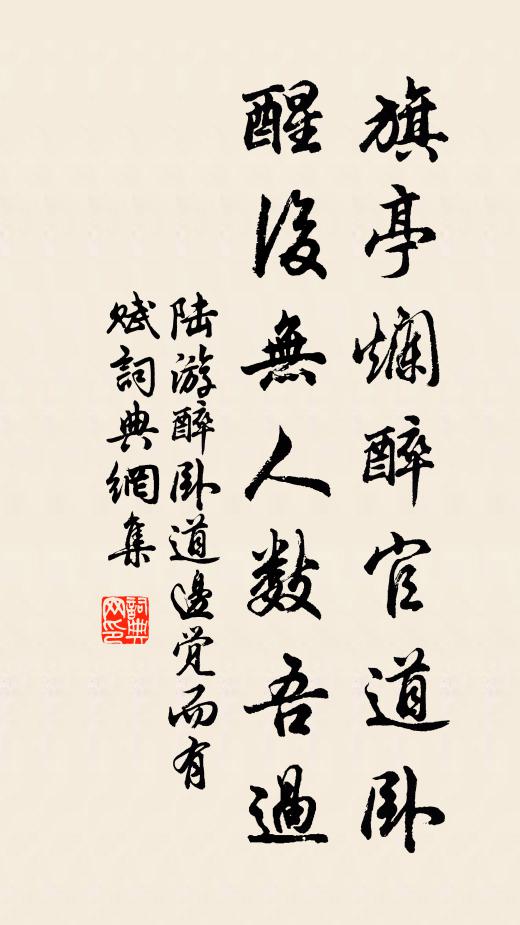 旗亭爛醉官道卧
醒後無人數吾過
陆游醉卧道邊觉而有
赋詞典網集
詞典网印